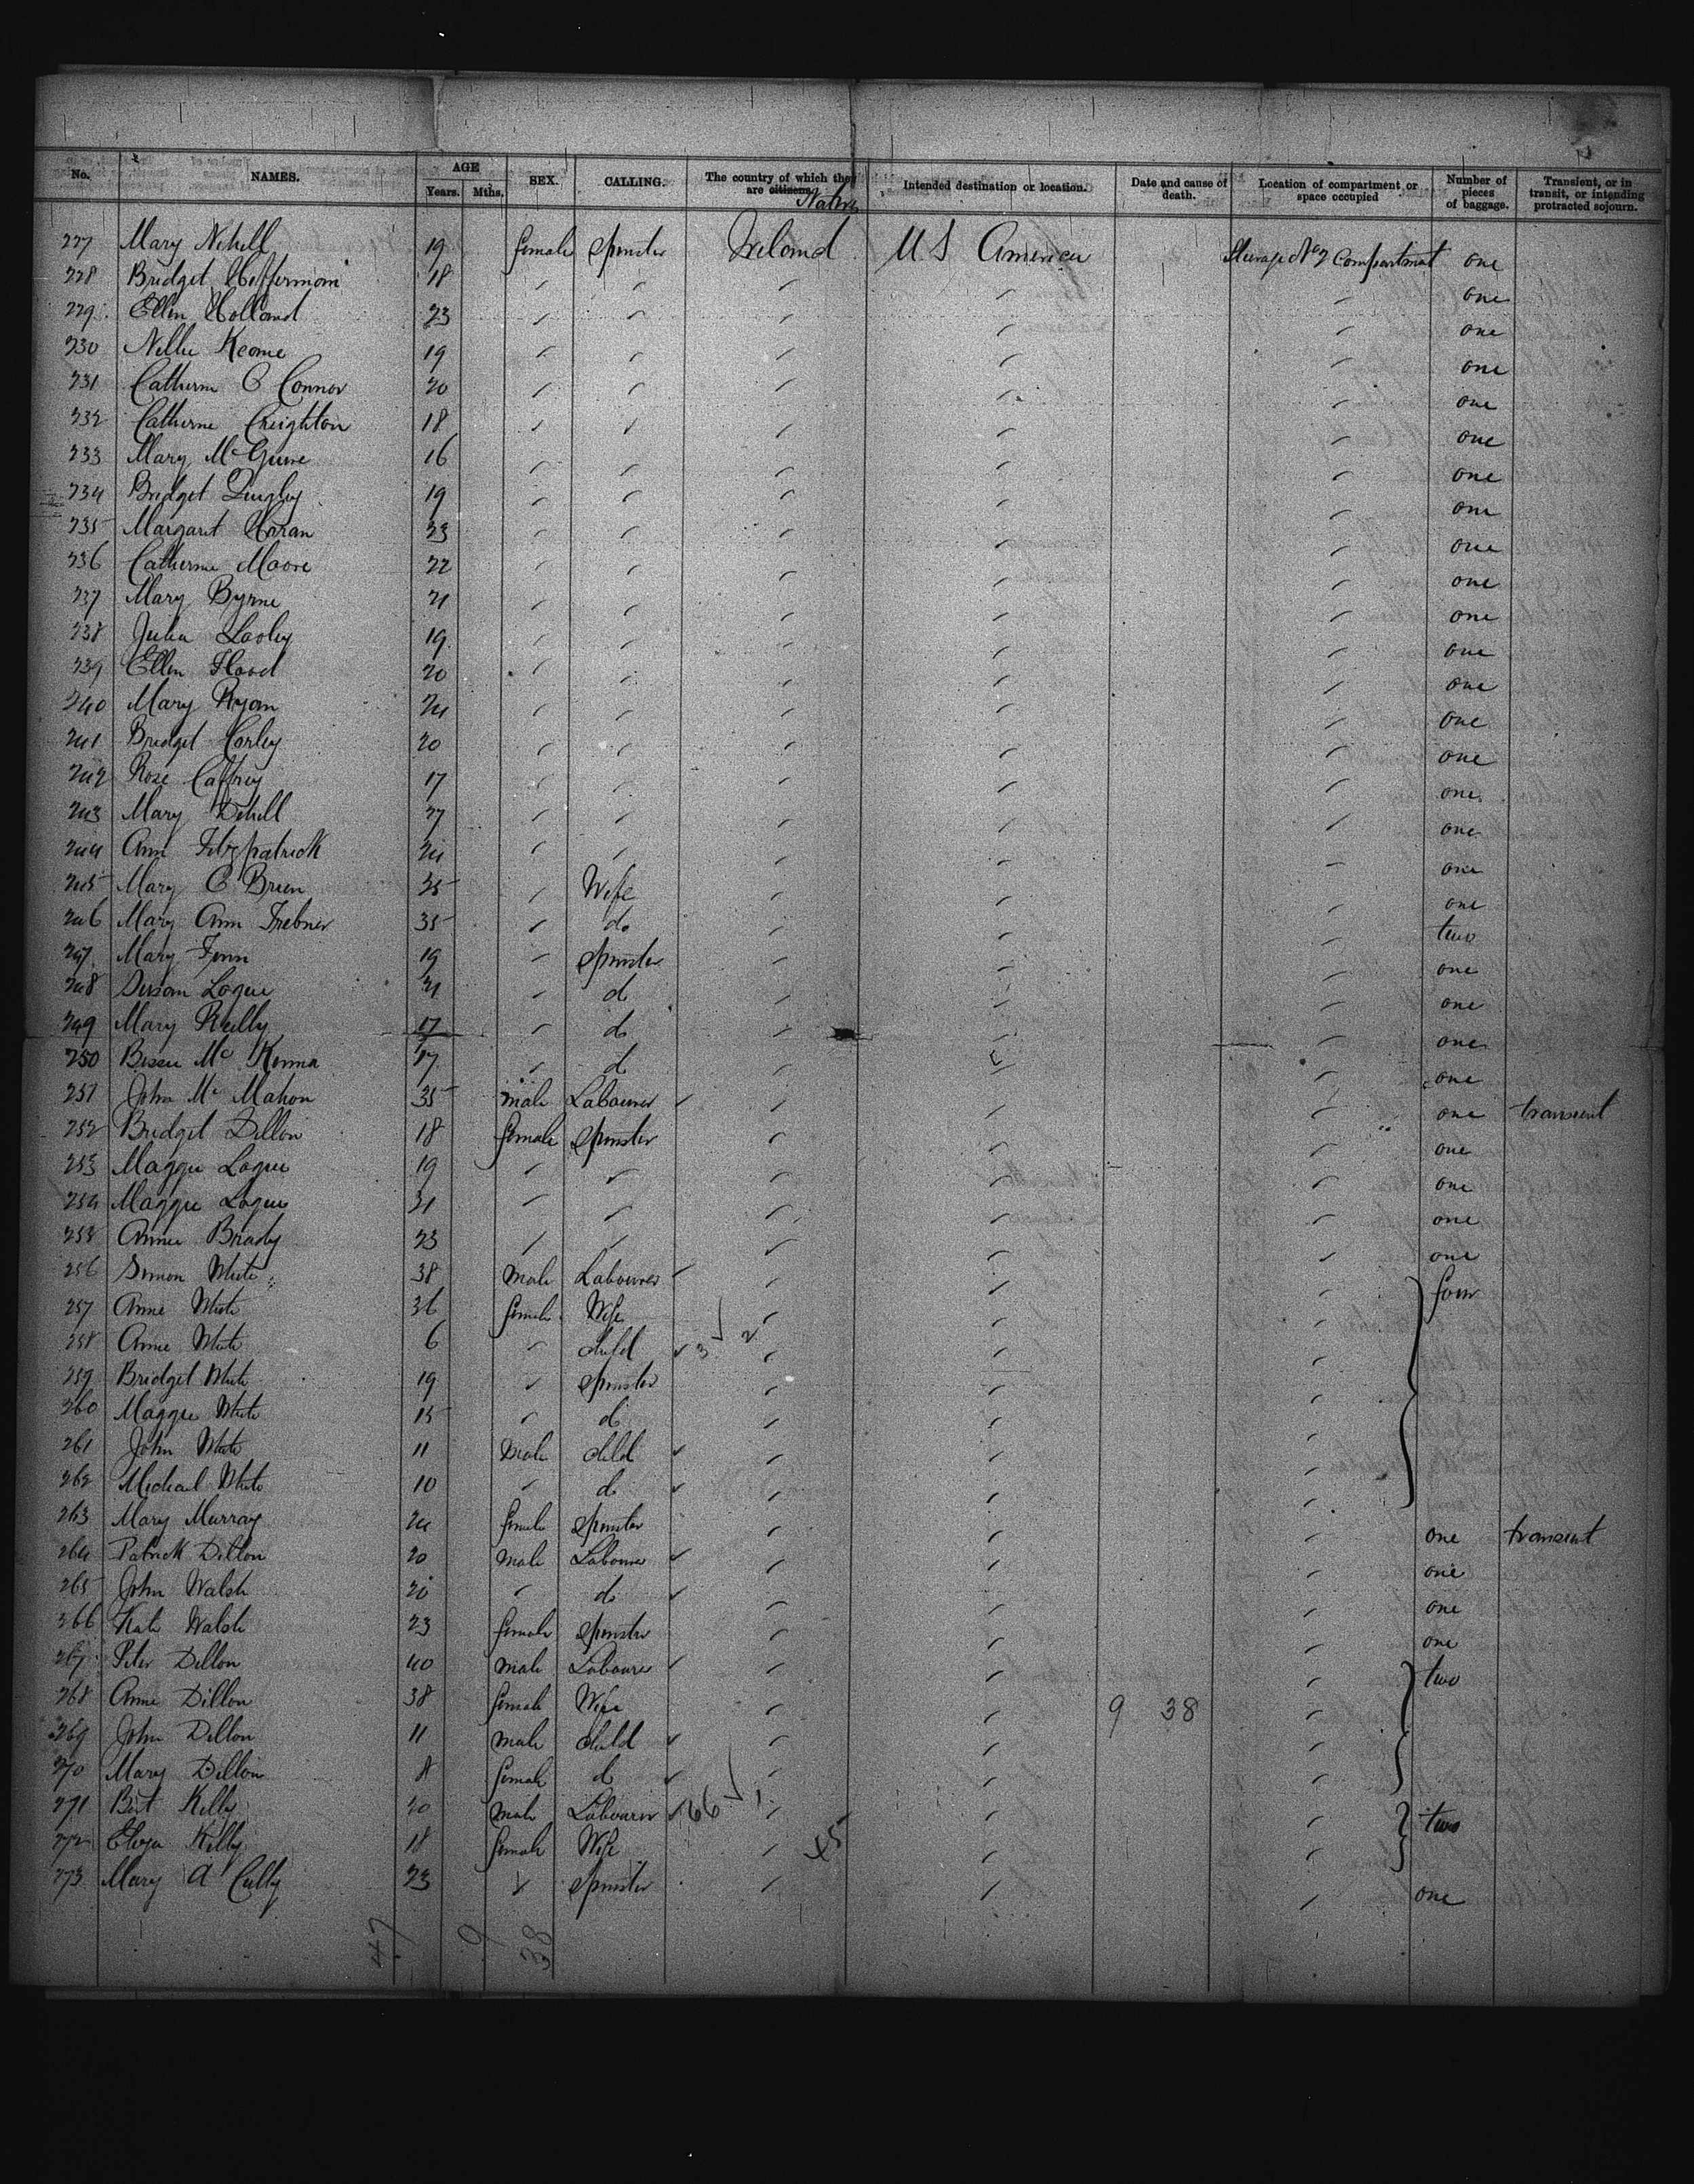 No. NAMES. AGE Years. Mths. SEX. CALLING. The country of which they are citizens. Natives Intended destination or location. Date and cause of death. Location of compartment or space occupied Number of pieces of baggage. Transient, or in transit, or intending protracted sojourn.
227 Mary Nehill 19 female Spinster Ireland U.S America Steerage No 2 Compartment one
228 Bridget Heffernan 18 one
229 Ellen Holland 23 one
230 Nellie Keane 19 one
231 Catherine O Connor 20 one
232 Catherine Creighton 18 one
233 Mary McGuire 16 one
234 Bridget Quigley 19 one
235 Margaret Horan 23 one
236 Catherine Moore 22 one
237 Mary Byrne 21 one
238 Julia Looley 19 one
239 Ellen Flood 20 one
240 Mary Ryan 24 one
241 Bridget Corley 20 one
242 Rose Caffrey 17 one
243 Mary 27 one
244 Ann Fitzpatrick 24 one
245 Mary O Brien 25 Wife one
246 Mary Ann 35 do two
247 Mary Finn 19 Spinster one
248 Susan Logue 21 do one
249 Mary Reilly 17 do one
250 Bessie McKenna 17 do one
251 John McMahon 35 male Labourer one transient
252 Bridget Dillon 18 female Spinster one
253 Maggie Logue 19 one
254 Maggie Logue 21 one
255 Annie Brady 23 one
256 Simon White 38 Male Labourer four
257 Anne White 36 female Wife
258 Annie White 6 child 3 2
259 Bridget White 19 Spinster
260 Maggie White 15 do
261 John White 11 Male child
262 Michael White 10 do
263 Mary Murray 24 female Spinster one transient
264 Patrick Dillon 20 male Labourer one
265 John Walsh 20 do one
266 Kate Walsh 23 female Spinster one
267 Peter Dillon 40 male Labourer two
268 Anne Dillon 38 female Wife 9 38
269 John Dillon 11 male child
270 Mary Dillon 8 female do
271 Kelly 20 male Labourer 66 1 two
272 Eliza Kelly 18 female Wife X5
273 Mary A Cully 23 Spinster one
47 9 38